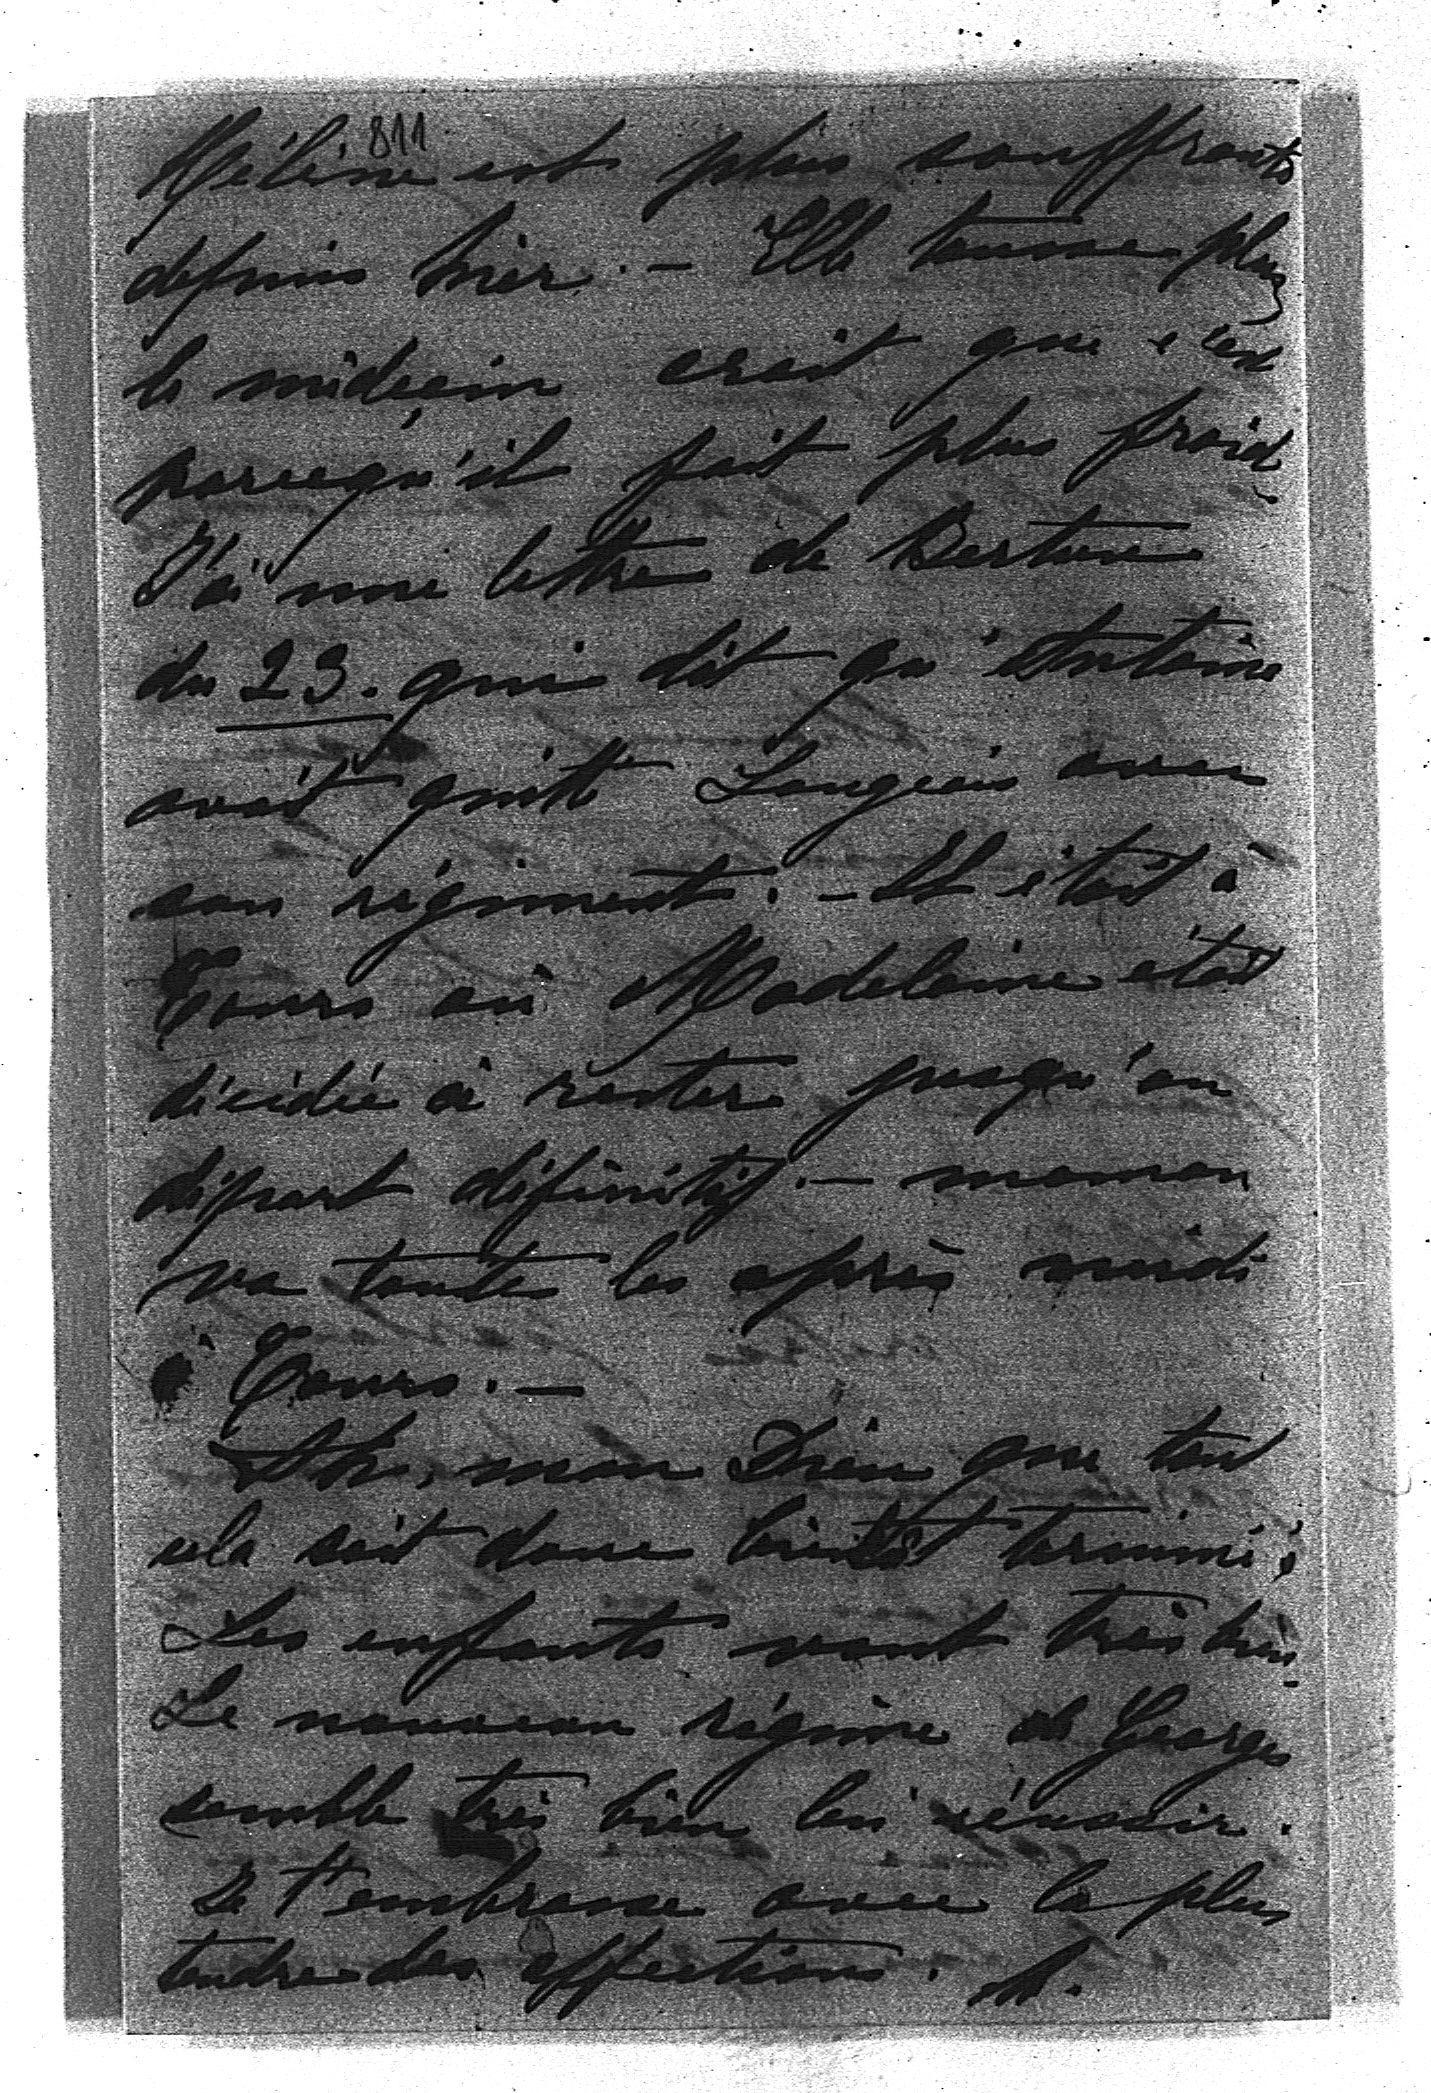 811
Hélène est plus souffrante
depuis hier. – Elle tousse plus
le médecin croit que c'est
parcequ'il fait plus froid.
J'ai une lettre de
du 23. qui dit qu'Antoine
avait quitté Langeais avec
son régiment. – Il était à
Tours où Madeleine était
décidée à rester jusqu'au
départ définitif. – maman
va toutes les après midi
à Tours. –
Ah, mon Dieu que tout
cela soit donc bientôt terminé!
Les enfants vont très bien.
Le nouveau régime de Georges
semble très bien lui réussir.
Je t'embrasse avec la plus
tendre des affections.